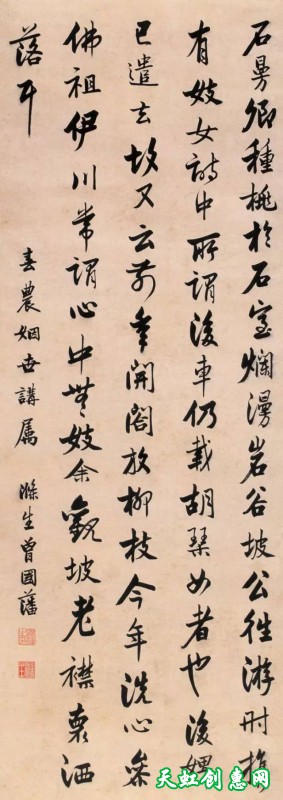 石曼卿種桃於石室爛漫岩谷坡公往游時攜
有妓女詩中所謂後車仍載胡琴女者也後妓
已遣去故又云前年開閤放柳枝今年洗心參
佛祖伊川常謂心中無妓余觀坡老襟裏洒
落耳
春農姻世講屬 滌生曾國藩
天虹创惠网